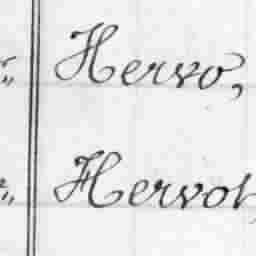 Hervo,
Hervot